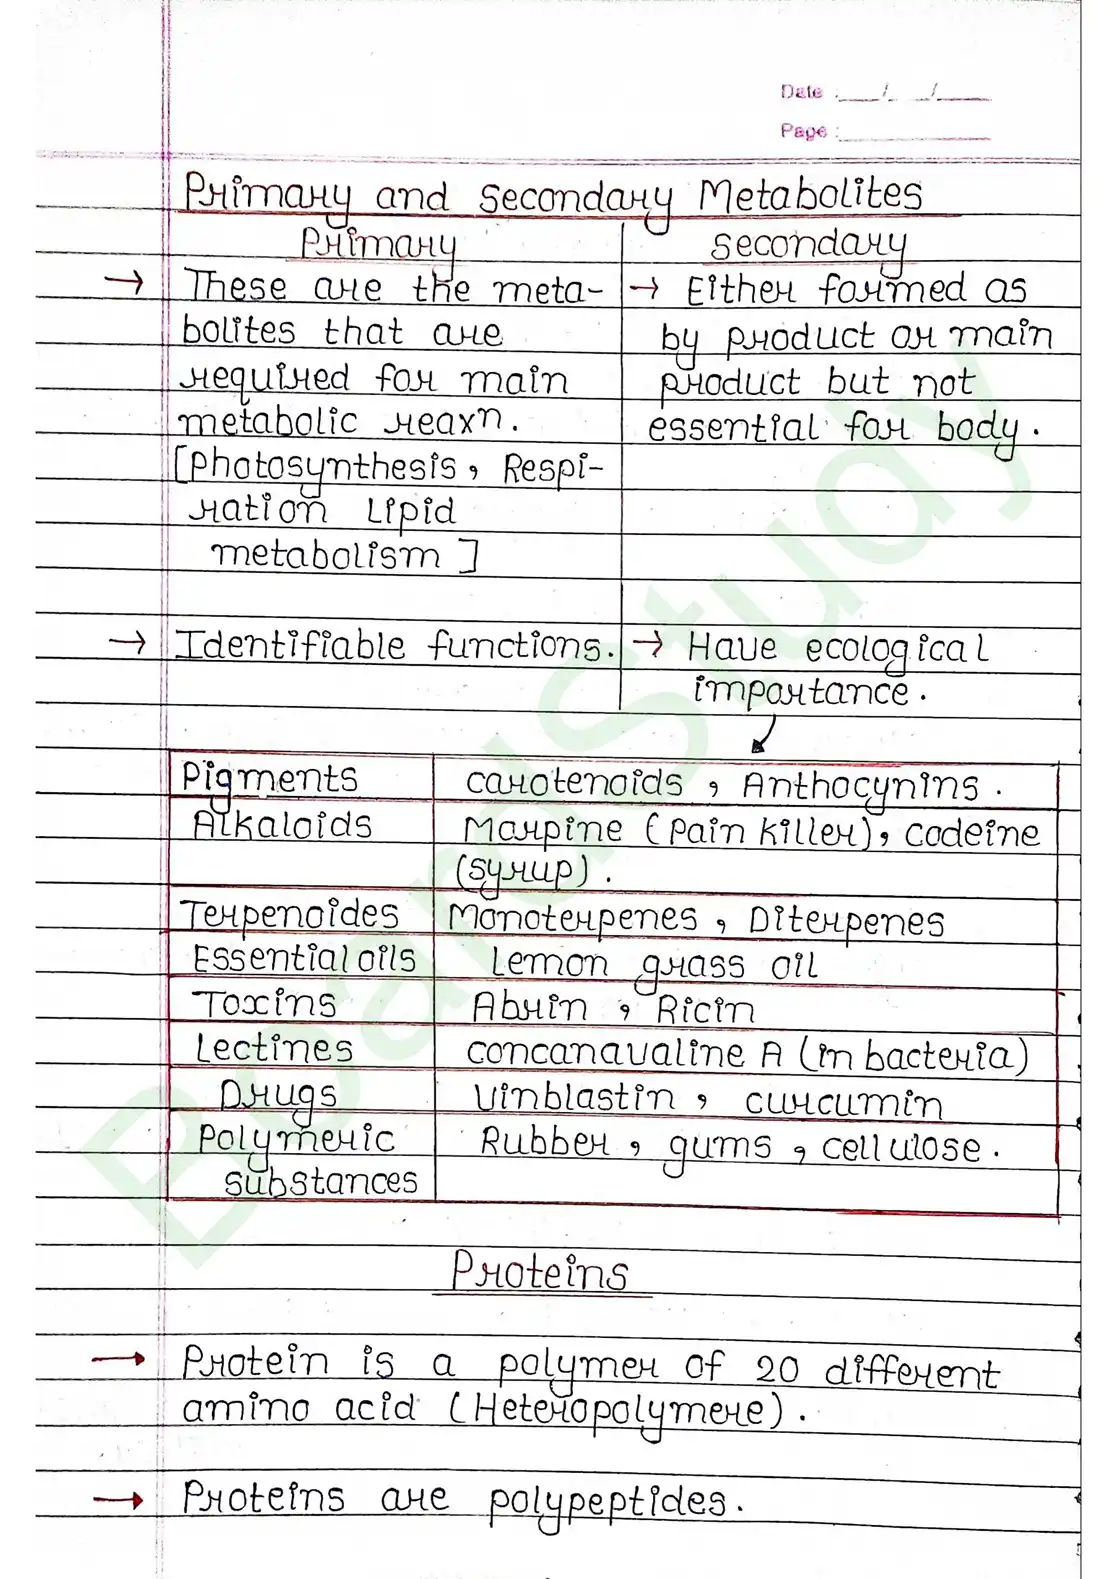 Date :___/_ _/___
Page :________
Primary and Secondary Metabolites
Primary
Secondary
→ These are the meta-
bolites that are
required for main
metabolic reaxn.
[Photosynthesis, Respi-
ration Lipid
metabolism]
→ Either formed as
by product or main
product but not
essential for body.
→ Identifiable functions.
→ Have ecological
importance.
Pigments carotenoids, Anthocynins.
Alkaloids Marpine (Pain killer), codeine
(syrup).
Terpenoides Monoterpenes, Diterpenes
Essential oils Lemon grass oil
Toxins Abrin, Ricin
Lectines concanavaline A (in bacteria)
Drugs Vinblastin, curcumin
Polymeric Rubber, gums, cellulose.
substances
Proteins
→ Protein is a polymer of 20 different
amino acid (Heteropolymere).
→ Proteins are polypeptides.
BoardStudy